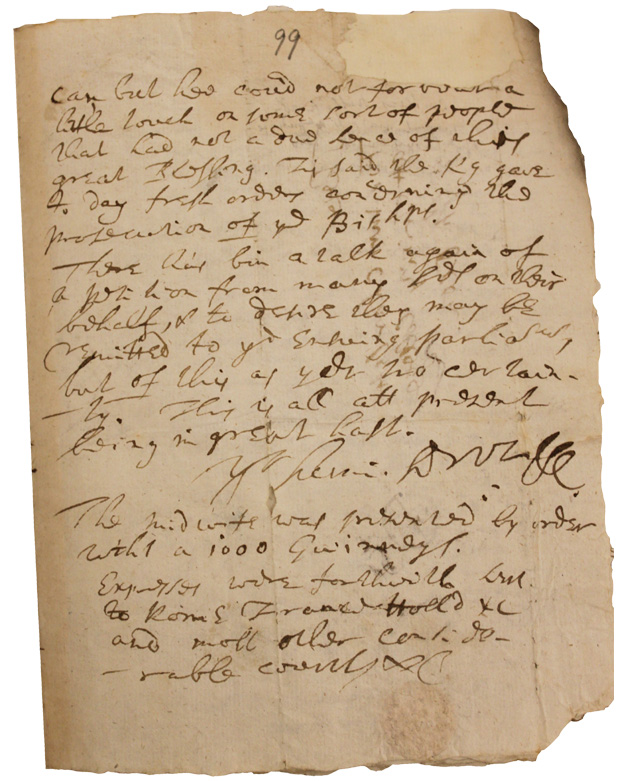 99
can but hee could not forbour a
little touch on some sort of people
that had not a due sence of this
great Blessing. Tis said the Kg gave
to day fresh orders concerning the
prosecution of ye Bishps.
There has bin a talk again of
a petition from many Lds on their
behalf, & to desire they may be
remitted to ye Ensuing parliamt,
but of this as yet no certain-
ty. This is all att present
being in great hast.
Yr
The midwife was presented by order
with a 1000 Guinneys.
Expresses were forthwith sent
to Rome France Holld &c
and most other conside-
rable courts &c